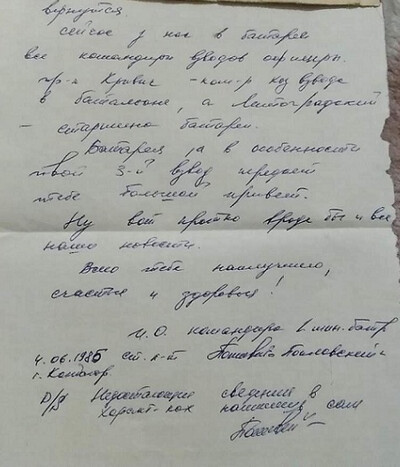 вернутся.
Сейчас у нас в батарее
все командиры взводов офицеры.
пр-к Кривич - ком-р хоз взвода
в батальоне, а
- старшина батареи.
Батарея, а в особенности
твой 3-й взвод передаёт
тебе большой привет.
Ну вот кратко вроде бы и все
наши новости.
Всего тебе наилучшего,
счастья и здоровья!
И.О. командира 1 мин. батр
4.06.1985 ст. л-нт
г. Кандагар
P/S Недостающие сведения в
характ-ках напишешь сам